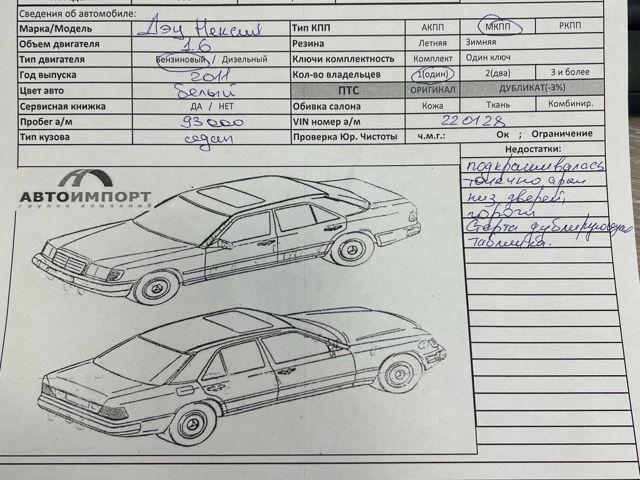 Сведения об автомобиле:
Марка/Модель Дэу Нексия Тип КПП АКПП МКПП РКПП
Объем двигателя 1.6 Резина Летняя Зимняя
Тип двигателя Бензиновый / Дизельный Ключи комплектность Комплект Один ключ
Год выпуска 2011 Кол-во владельцев 1(один) 2(два) 3 и более
Цвет авто белый ПТС ОРИГИНАЛ ДУБЛИКАТ(-3%)
Сервисная книжка ДА / НЕТ Обивка салона Кожа Ткань Комбинир.
Пробег а/м 93000 VIN номер а/м 220128
Тип кузова седан Проверка Юр. Чистоты ч.м.г.: Ок ; Ограничение
Недостатки:
подкрашивалась
точечно арки
низ дверей
пороги
Стерта дублирующая
табличка.
АВТОИМПОРТ
группа компаний